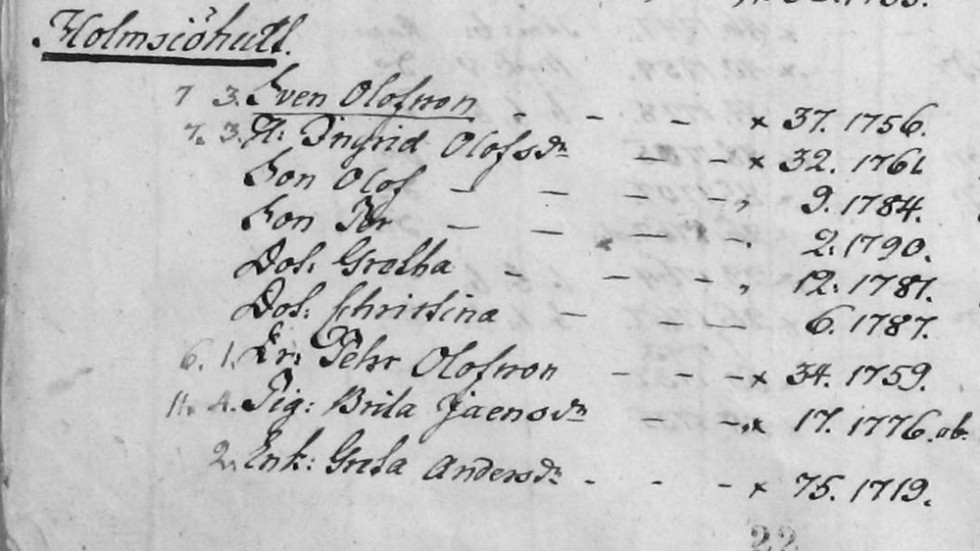 Holmsjöhult.
7 3. Sven Olofsson - - x 37. 1756.
7. 3. H: Ingrid Olofsdr - - x 32. 1761
Son Olof - - - - , 9. 1784.
Son Per - - - - . 2. 1790.
Dot. Gretha - - - , 12. 1781.
Dot: Christina - - - 6. 1787.
6. 1. Dr: Pehr Olofsson - - - x 34. 1759.
11. 4. Pig: Brita Jaensdr - - x 17. 1776. ab.
2. Enk: Greta Andersdr - - - x 75. 1719.
22